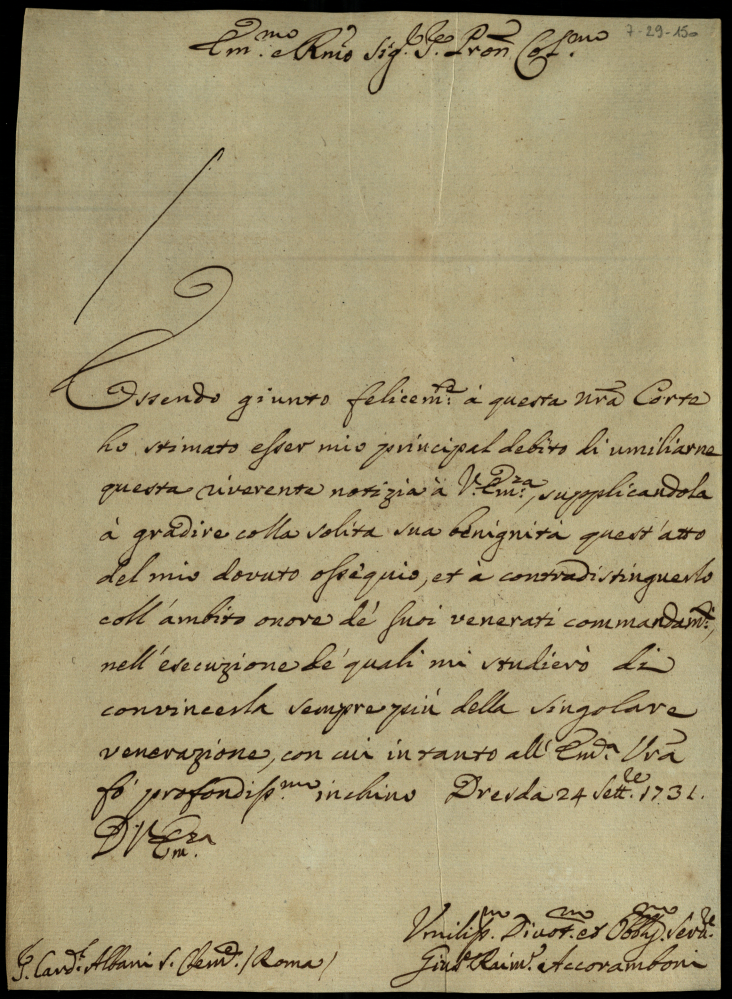 7-29-150
Em.mo e Rmo Sig.r Pron Col.mo
Essendo giunto felicem.te à questa nrã Corte
ho stimato esser mio principal debito di umiliarne
questa riverente notizia à V.Em.za, supplicandola
à gradire colla solita sua benignità quest'atto
del mio dovuto ossequio, et à contradistinguerlo
coll'ambito onore de' suoi venerati commandam.ti,
nell'esecuzione de' quali mi studierò di
convincerla sempre più della singolare
venerazione, con cui in tanto all'Em.a Vrã
fò profondiss.mo inchino Dresda 24 Sett.e 1731.
D V Em.za
Umiliss.mo Divot.mo et Obblig.mo Serv.re
Gius.e Raim.o Accoramboni
S. Card.l Albani S. Clem.te (Roma)